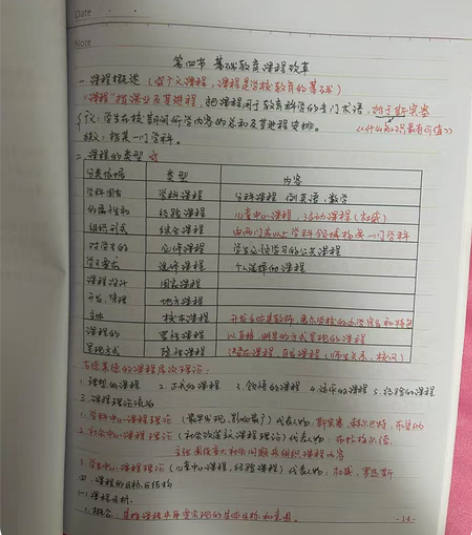 Date
Note
第四节 基础教育课程改革
一、课程概述（窄了又课程，课程是学校教育的基础）
"课程"指课业及其进程，把课程用于教育科学的专门术语，始于斯宾塞
广义：学生在校期间所学内容的总和及其进程安排。《什么知识最有价值》
狭义：指某一门学科。
二、课程的类型
分类依据 类型 内容
学科固有 学科课程 分科课程 例英语、数学
的属性和 经验课程 儿童中心课程、活动课程（杜威）
组织形式 综合课程 由两门或以上学科领域构成一门学科
对学生的 必修课程 学生必须学习的公共课程
学习要求 选修课程 个人选择的课程
课程设计 国家课程
开发、管理 地方课程
主体 校本课程
课程的 显性课程 以直接、明显的方式呈现的课程
呈现方式 隐性课程 潜在课程 自发课程（师生关系、校风）
古德莱德的课程层次理论：
1.理想的课程 2.正式的课程 3.领悟的课程 4.运作的课程 5.经验的课程
三、课程理论流派
1.学科中心课程理论（最早出现、影响最广）代表人物：斯宾塞、赫尔巴特、布鲁纳
2.社会中心课程理论（社会改造主义课程理论）代表人物：布拉梅尔德
主张围绕重大社会问题来组织课程内容
3.学生中心课程理论（儿童中心课程、经验课程）代表人物：杜威、罗杰斯
四、课程的目标与结构
(一)课程目标
1.概念：是指课程本身要实现的具体目标和意图。
-14-